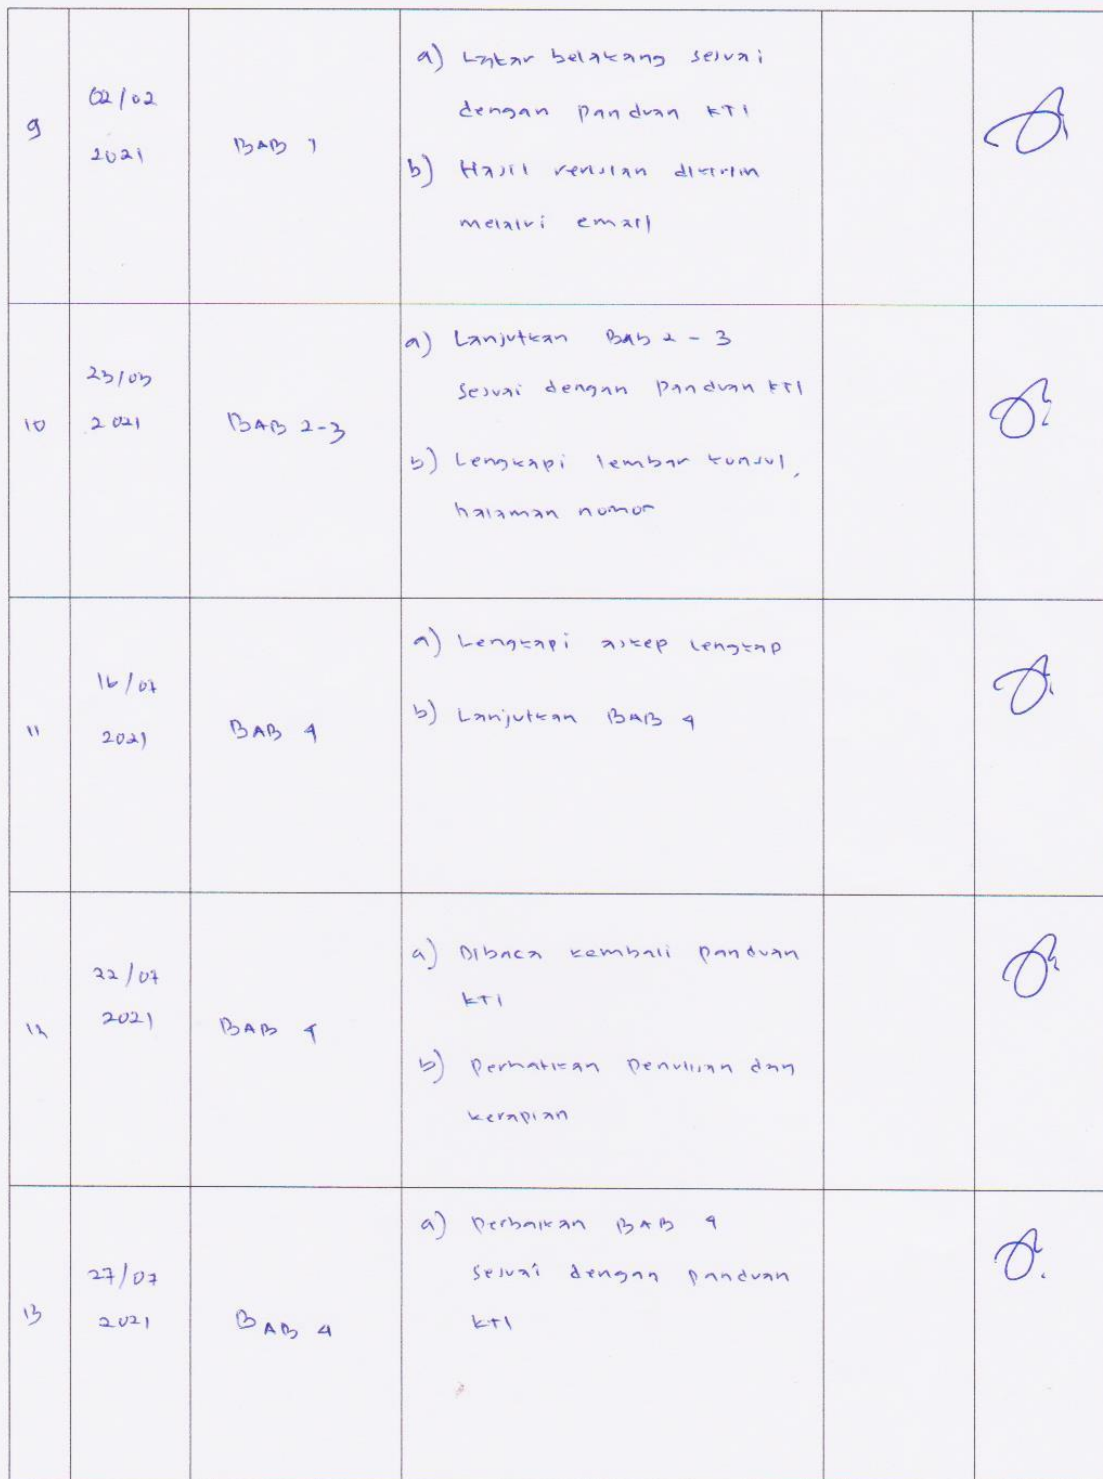 9
02/02
2021
BAB 1
a) Latar belakang sesuai
dengan panduan KTI
b) Hasil revisian dikirim
melalui email
10
23/03
2021
BAB 2-3
a) Lanjutkan Bab 2 - 3
Sesuai dengan Panduan KTI
b) Lengkapi lembar konsul,
halaman nomor
11
16/07
2021
BAB 4
a) Lengkapi askep lengkap
b) Lanjutkan BAB 4
12
22/07
2021
BAB 4
a) Dibaca kembali panduan
KTI
b) Perhatikan Penulisan dan
kerapian
13
27/07
2021
BAB 4
a) Perbaikan BAB 4
Sesuai dengan panduan
KTI